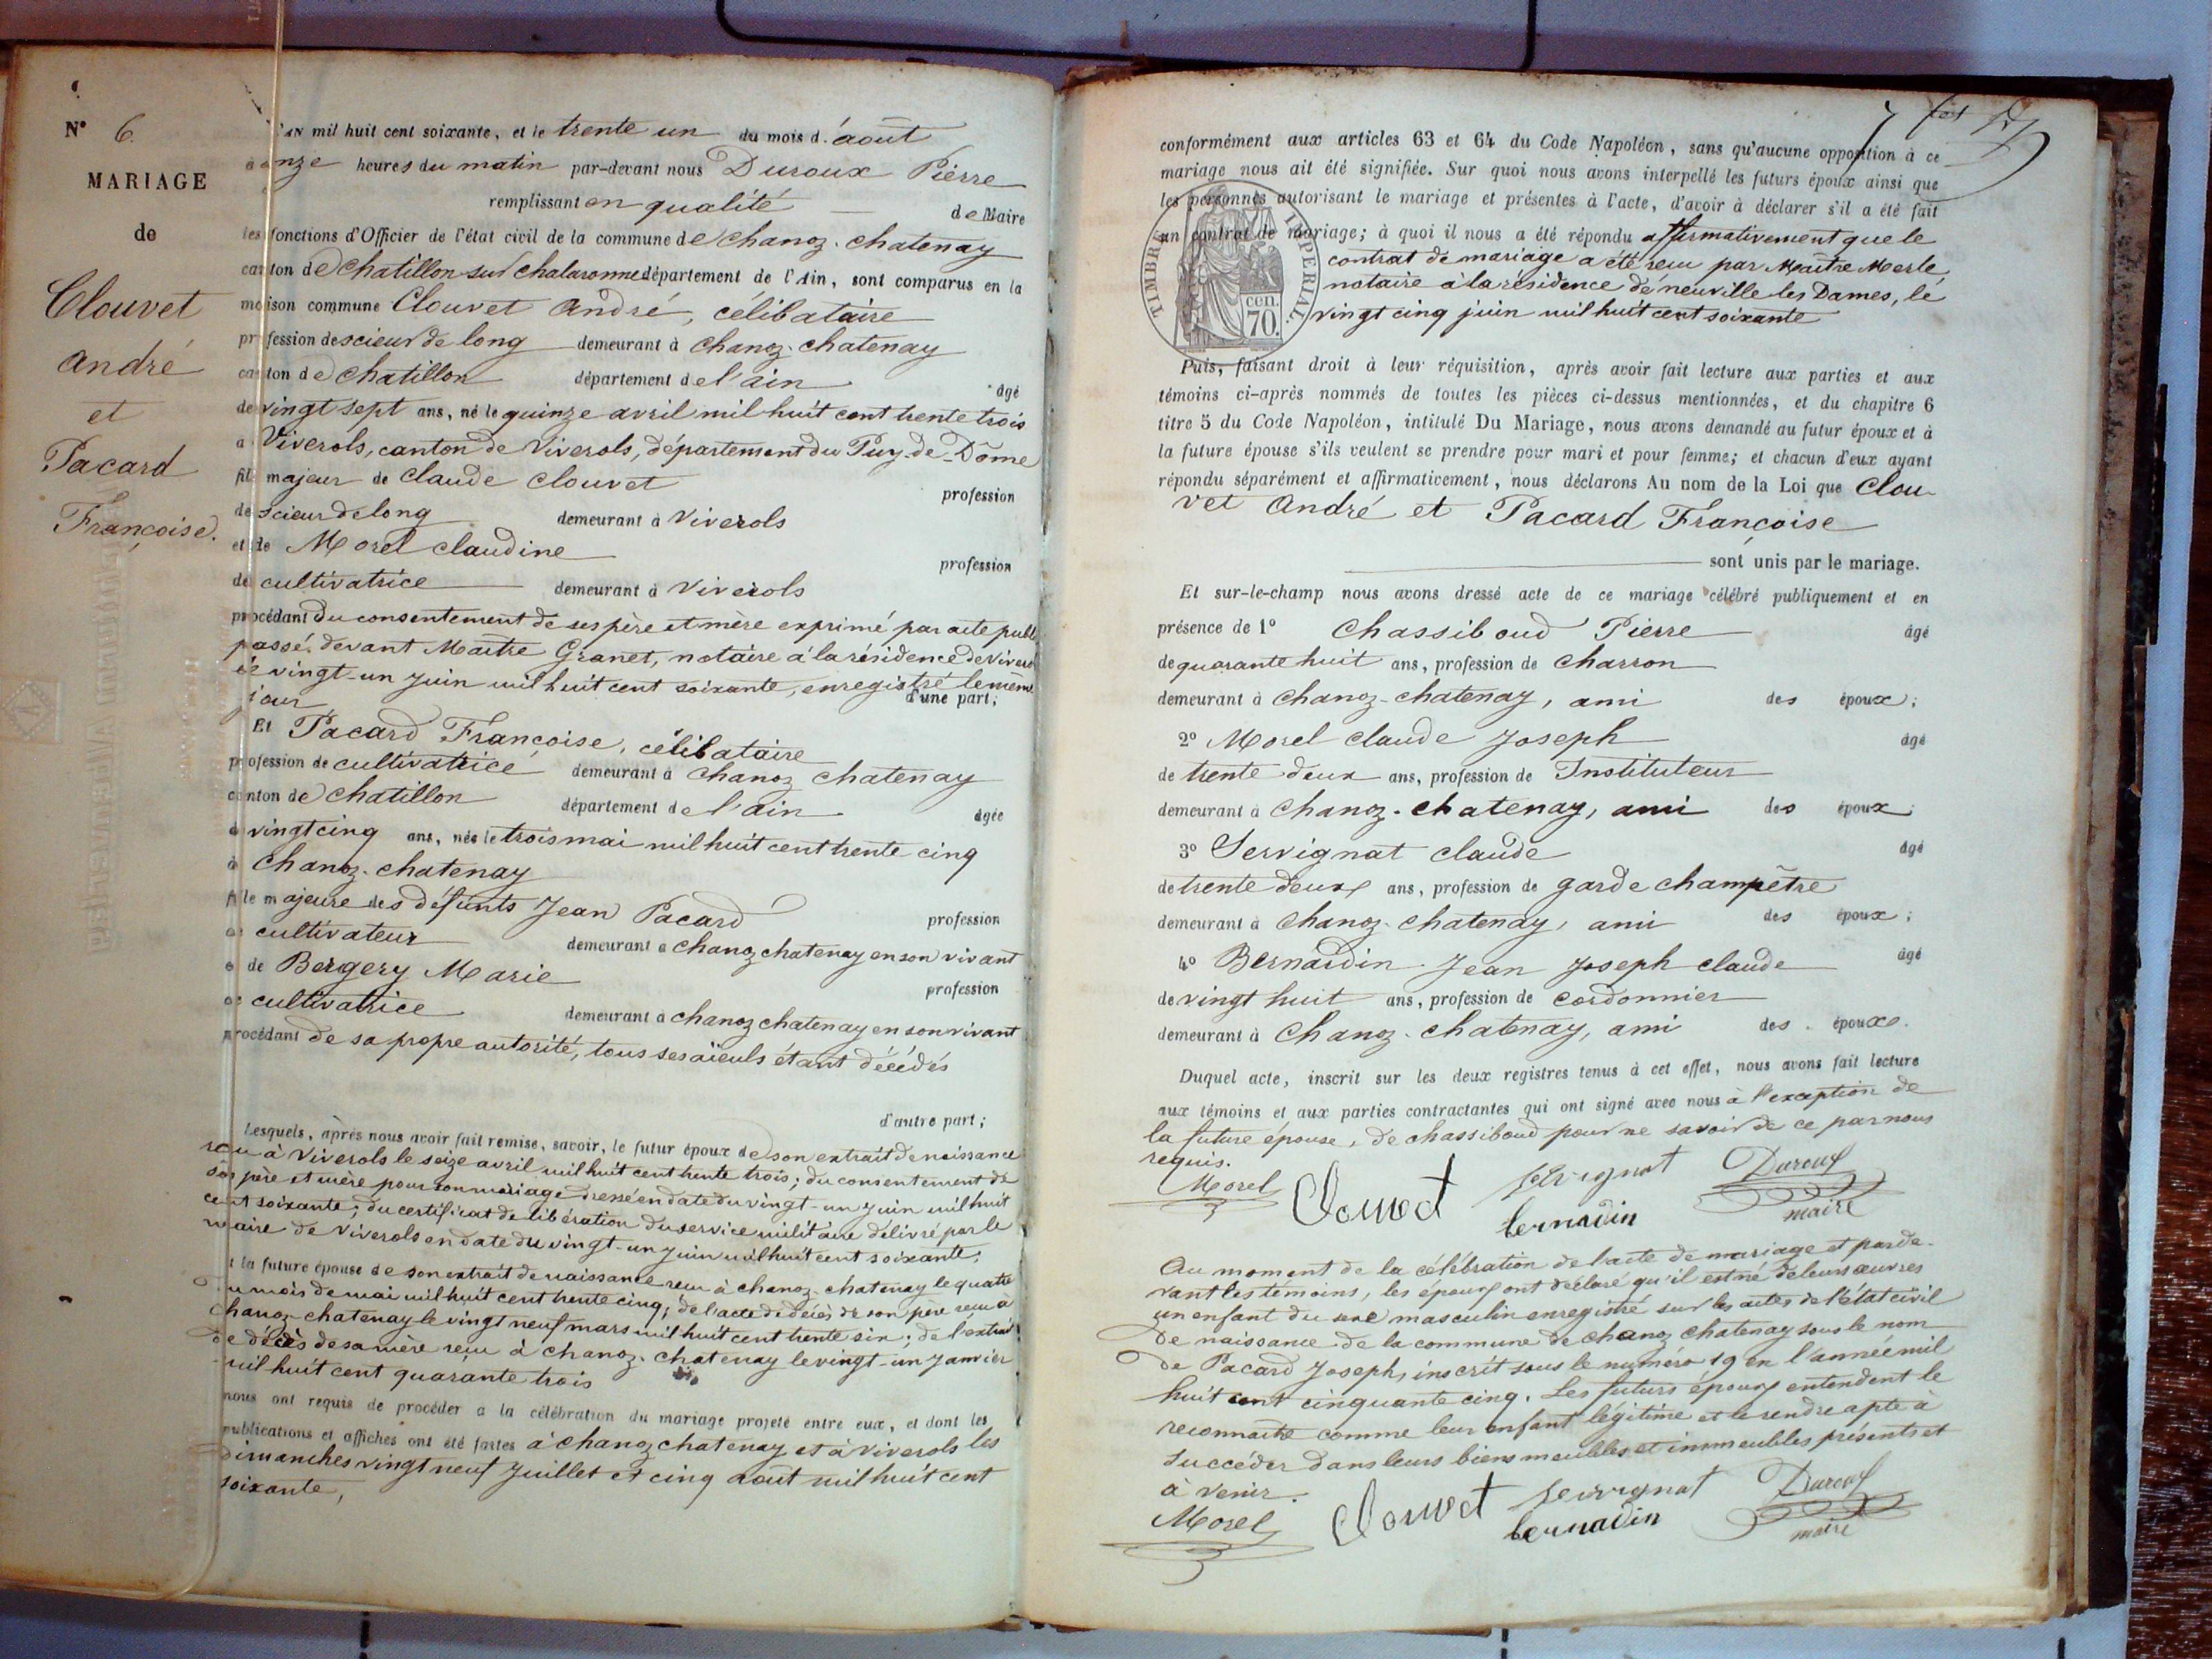 N° 6.
MARIAGE
de
Clouvet
André
et
Pacard
Françoise.
AN mil huit cent soixante, et le trente un du mois d'août
à onze heures du matin par-devant nous Duroux Pierre
remplissant en qualité de Maire
les fonctions d'Officier de l'état civil de la commune de Chanoz-Chatenay
canton de Chatillon sur Chalaronne département de l'Ain, sont comparus en la
maison commune Clouvet André, célibataire
profession de scieur de long demeurant à Chanoz-Chatenay
canton de Chatillon département de l'ain âgé
de vingt sept ans, né le quinze avril mil huit cent trente trois
à Viverols, canton de Viverols, département du Puy-de-Dôme
fils majeur de Claude Clouvet profession
de scieur de long demeurant à Viverols
et de Morel Claudine profession
de cultivatrice demeurant à Viverols
procédant du consentement de ses père et mère exprimé par acte publ
passé devant Maître Granet, notaire à la résidence de Viverols
le vingt-un juin mil huit cent soixante, enregistré le même
jour d'une part;
Et Pacard Françoise, célibataire
profession de cultivatrice demeurant à Chanoz Chatenay
canton de Chatillon département de l'ain âgée
de vingt cinq ans, née le trois mai mil huit cent trente-cinq
à Chanoz-Chatenay
fille majeure des défunts Jean Pacard profession
de cultivateur demeurant à Chanoz Chatenay en son vivant
et de Bergery Marie profession
de cultivatrice demeurant à Chanoz Chatenay en son vivant
procédant de sa propre autorité, tous ses aïeuls étant décédés
d'autre part;
Lesquels, après nous avoir fait remise, savoir, le futur époux de son extrait de naissance
reçu à Viverols le seize avril mil huit cent trente trois; du consentement de
ses père et mère pour son mariage dressé en date du vingt-un juin mil huit
cent soixante; du certificat de libération du service militaire délivré par le
maire de Viverols en date du vingt-un juin mil huit cent soixante;
et la future épouse de son extrait de naissance reçu à Chanoz-Chatenay le quatre
du mois de mai mil huit cent trente cinq; de l'acte de décès de son père reçu à
Chanoz-Chatenay le vingt neuf mars mil huit cent trente six; de l'extrait
de décès de sa mère reçu à Chanoz-Chatenay le vingt-un janvier
mil huit cent quarante trois
nous ont requis de procéder a la célébration du mariage projeté entre eux, et dont les
publications et affiches ont été faites à Chanoz Chatenay et à Viverols les
dimanches vingt neuf juillet et cinq aout mil huit cent
soixante,
conformément aux articles 63 et 64 du Code Napoléon, sans qu'aucune opposition à ce
mariage nous ait été signifiée. Sur quoi nous avons interpellé les futurs époux ainsi que
les personnes autorisant le mariage et présentes à l'acte, d'avoir à déclarer s'il a été fait
un contrat de mariage; à quoi il nous a été répondu affirmativement que le
contrat de mariage a été reçu par Maître Merle,
notaire à la résidence de neuville les Dames, le
vingt cinq juin mil huit cent soixante
TIMBRE IMPERIAL.
cen.
70.
Puis, faisant droit à leur réquisition, après avoir fait lecture aux parties et aux
témoins ci-après nommés de toutes les pièces ci-dessus mentionnées, et du chapitre 6
titre 5 du Code Napoléon, intitulé Du Mariage, nous avons demandé au futur époux et à
la future épouse s'ils veulent se prendre pour mari et pour femme; et chacun d'eux ayant
répondu séparément et affirmativement, nous déclarons Au nom de la Loi que Clou-
vet André et Pacard Françoise
sont unis par le mariage.
Et sur-le-champ nous avons dressé acte de ce mariage célébré publiquement et en
présence de 1° Chassiboud Pierre âgé
de quarante huit ans, profession de charron
demeurant à Chanoz-Chatenay, ami des époux;
2° Morel Claude Joseph âgé
de trente deux ans, profession de Instituteur
demeurant à Chanoz-Chatenay, ami des époux;
3° Servignat Claude âgé
de trente deux ans, profession de garde champêtre
demeurant à Chanoz-Chatenay, ami des époux;
4° Bernardin Jean Joseph Claude âgé
de vingt huit ans, profession de cordonnier
demeurant à Chanoz-Chatenay, ami des époux.
Duquel acte, inscrit sur les deux registres tenus à cet effet, nous avons fait lecture
aux témoins et aux parties contractantes qui ont signé avec nous à l'exception de
la future épouse, de Chassiboud pour ne savoir de ce par nous
requis.
Morel Clouvet servignat Duroux
bernadin maire
Au moment de la célébration de l'acte de mariage et parde-
vant les témoins, les époux ont déclaré qu'il est né de leurs œuvres
un enfant du sexe masculin enregistré sur les actes de l'état civil
de naissance de la commune de Chanoz Chatenay sous le nom
de Pacard Joseph, inscrit sous le numéro 19 en l'année mil
huit cent cinquante cinq. Les futurs époux entendent le
reconnaitre comme leur enfant légitime et le rendre apte à
succéder dans leurs biens meubles et immeubles présents et
à venir.
Morel Clouvet servignat Duroux
bernadin maire